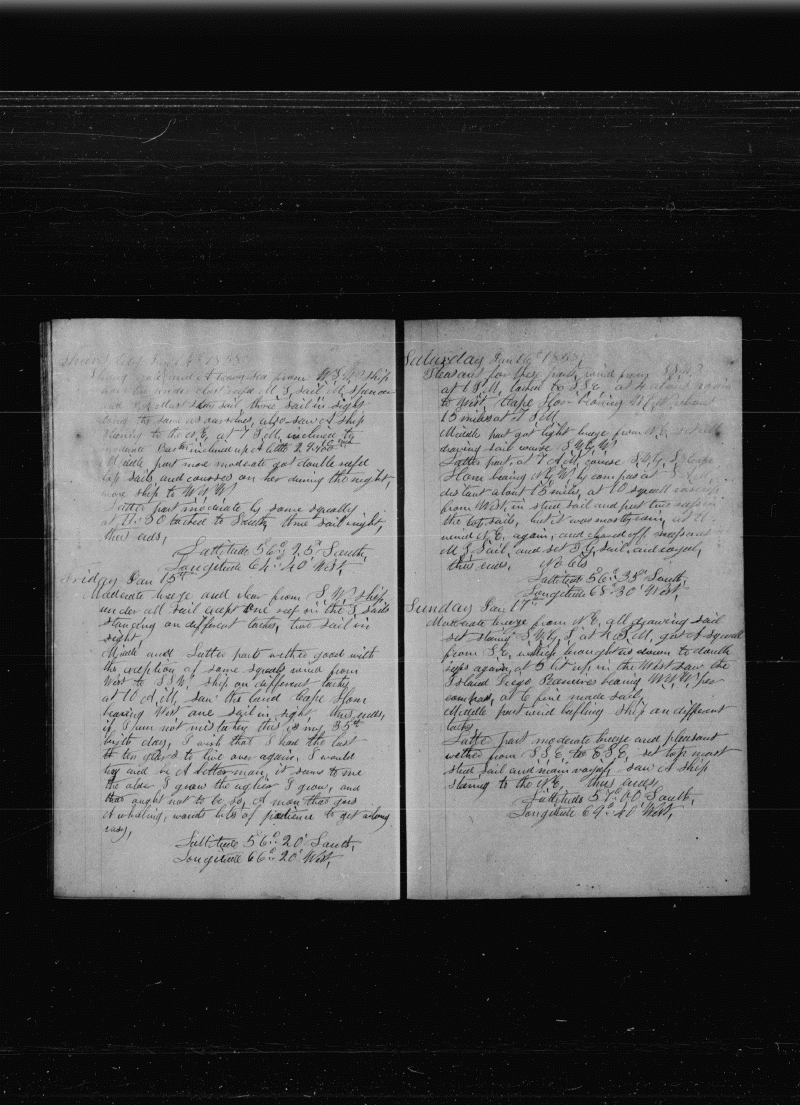 Thursday Jan 14th 1858
Strong gale and A heavy sea from W.S.W. Ship
under close reefd M. T. Sail M. Spencer
and stay sail, three sail in sight
the same as ourselves, also saw A ship
to the N.E. at 7 P.M. inclined to
moderate
Middle part more moderate got double reefd
top sails and courses on her during the night,
ship to W.N.W.
Latter part moderate by some squally
at 11.30 tacked to South, three sail in sight,
thus ends,
Lattitude 56°. 25' South,
Longitude 64°. 40' West,
Friday Jan 15th
Moderate breeze and clear from S.W. ship
under all sail except one reef in the T. Sails
standing on different tacks, two sail in
sight
Middle and Latter parts wether good with
the exception of some squalls wind from
West to S.S.W. ship on different tacks,
at 10 A.M. saw the land Cape Horn
bearing West one sail in sight thus ends,
if I am not mistaken this is my 35th
birth day, I wish that I had the last
ten years to live over again, I would
try and be A better man, it seams to me
the older I grow the uglier I grow, and
that ought not to be so, A man that goes
A whaling, wants lots of patience to get along
easy,
Lattitude 56°. 20' South,
Longitude 66°. 20' West,
Saturday Jan 16th 1858,
Pleasant for these parts, wind from
at 1 P.M. tacked to S.S.E. at 4 again
to West, Cape Horn bearing about
15 miles at 7 P.M.
Middle part got light breeze from N.E. set all
drawing sail course S.W.
Latter part, at 7 A.M. course S.W. Cape
Horn being N.E. by compas at
distant about 15 miles, at 10 squall
from West, in stud sail and put two reefs in
the top sails, but it was mostly rain, at 11
wind N.E. again, and shoved off reefs out
M. T. Sail, and set T.G. sail, and royal,
thus ends,
Lattitude 56°. 35' South,
Longitude 68°. 30' West,
Sunday Jan 17th
Moderate breeze from N.E. all drawing sail
set steering S.W. by S. at 4 P.M. got A squall
from S.E. which brought us down to double
reefs again, at 5 lit up in the West saw the
Island Diego Ramires bearing W.N.W. per
compass, at 6 fine made sail,
Middle part wind baffling ship on different
tacks,
Latter part moderate breeze and pleasant
wether from S.S.E. to E.S.E. set top mast
stud sail and main royal, saw A ship
steering to the N.E. thus ends,
Lattitude 57°. 00' South,
Longitude 69°. 40' West,